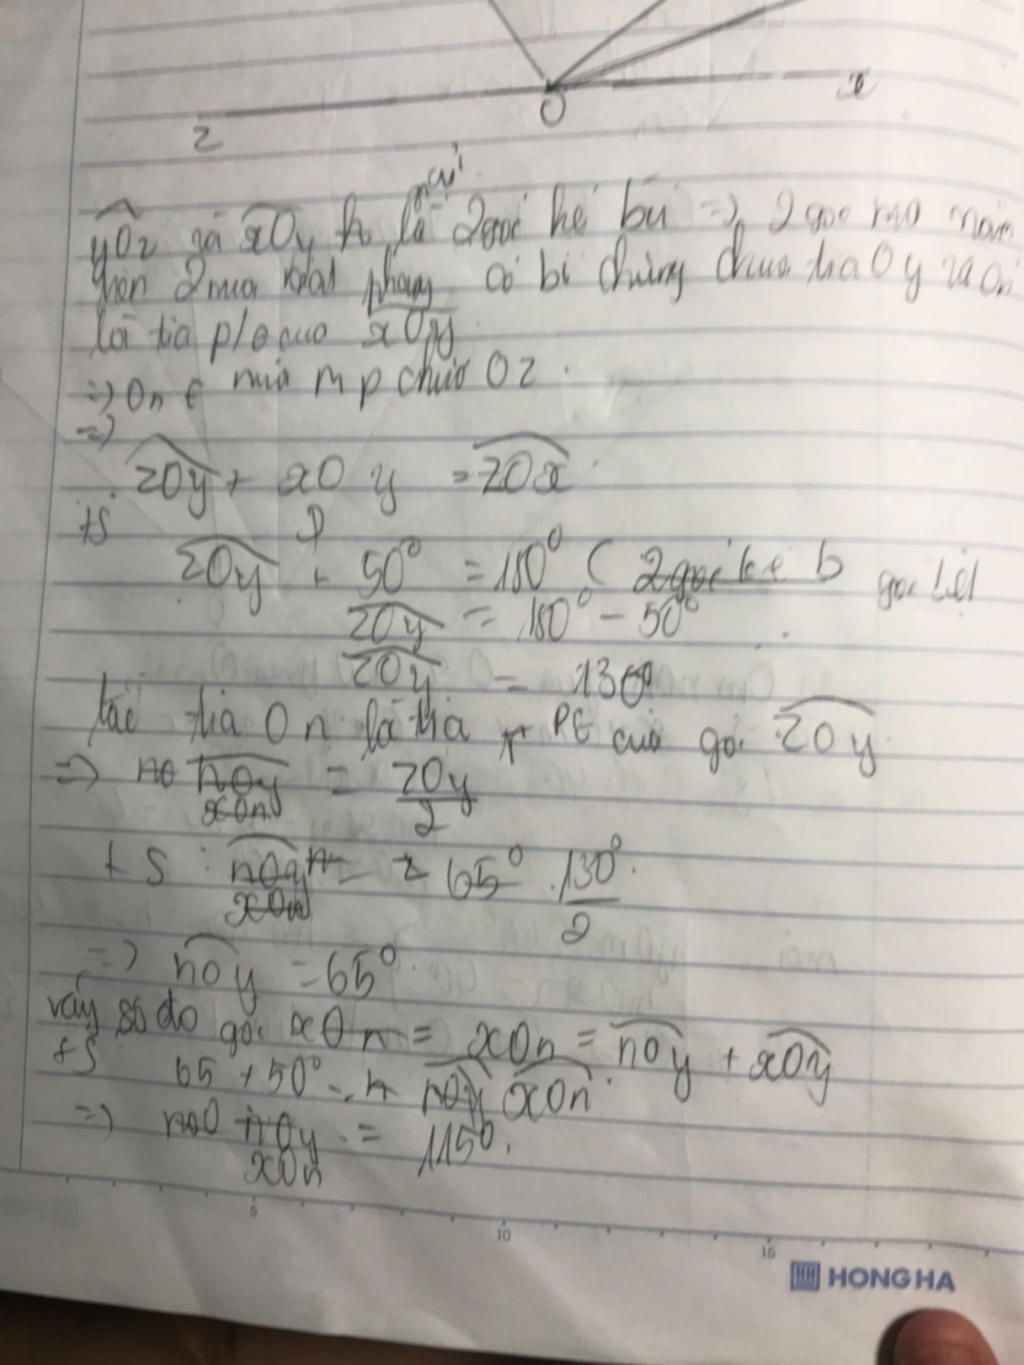 O
x
z
yOz và xOy là 2 góc kề bù => 2 góc mà nằm
trên 2 nửa phẳng có bờ chung chứa tia Oy và On
là tia p/g của xOy
=> On € nửa mp chứa Oz.
=>
zOy + xOy = zOx
tS
zOy + 50° = 180° ( 2 góc kề b góc bẹt
zOy = 180° - 50°
zOy = 130°
tia On là tia PG của góc zOy
=> nOy = zOy/2
xOn
tS: nOy = 65° 130°/2
xOn
=> nOy = 65°
vậy số đo góc xOn = xOn = nOy + xOy
tS 65 + 50° = nOy xOn
=> nOy = 115°.
xOn
5 10 15
HONG HA